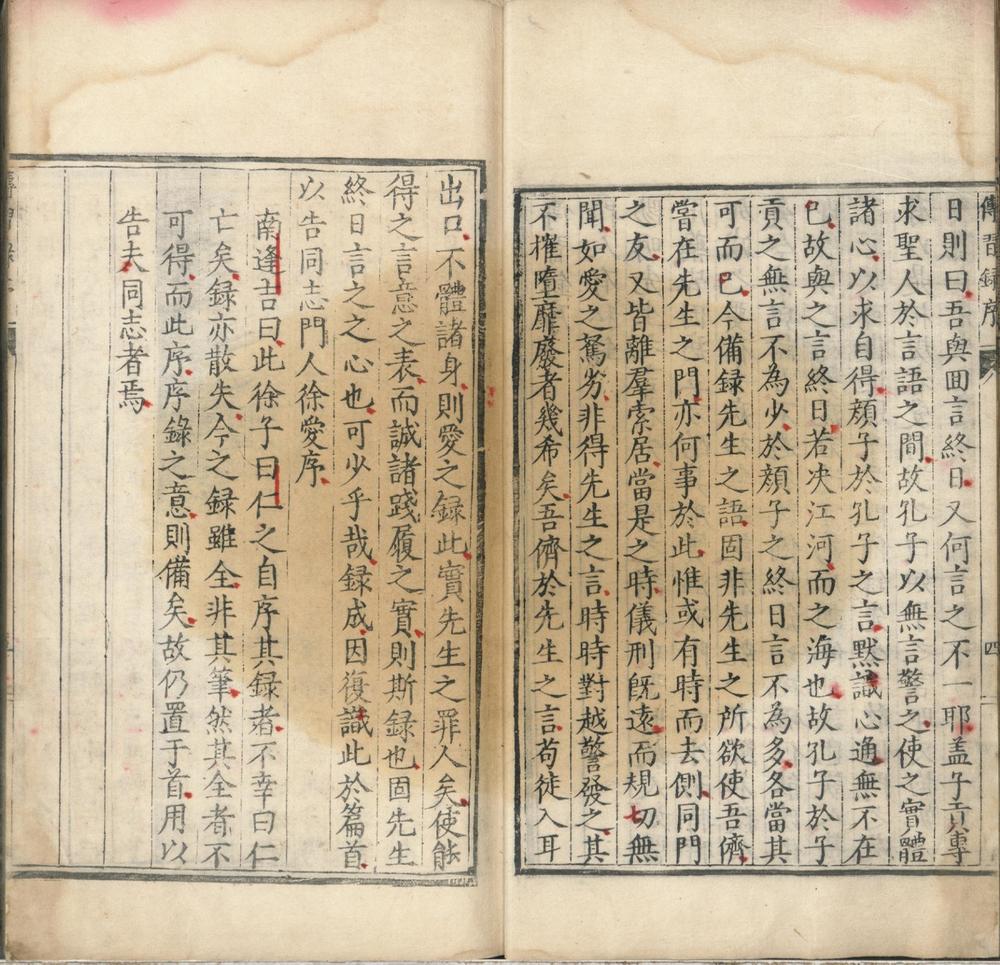 傳習録序
四
日則曰吾與囬言終日又何言之不一耶盖子貢專
求聖人於言語之間故孔子以無言警之使之實體
諸心以求自得顔子於孔子之言黙識心通無不在
已故與之言終日若决江河而之海也故孔子於子
貢之無言不為少於顔子之終日言不為多各當其
可而已今備録先生之語固非先生之所欲使吾儕
嘗在先生之門亦何事於此惟或有時而去側同門
之友又皆離羣索居當是之時儀刑旣遠而規切無
聞如愛之駑劣非得先生之言時時對越警發之其
不摧墮靡廢者幾希矣吾儕於先生之言苟徒入耳
出口不體諸身則愛之録此實先生之罪人矣使能
得之言意之表而誠諸踐履之實則斯録也固先生
終日言之之心也可少乎哉録成因復識此於篇首
以告同志門人徐愛序
南逢吉曰此徐子曰仁之自序其録者不幸曰仁
亡矣録亦散失今之録雖全非其筆然其全者不
可得而此序序錄之意則備矣故仍置于首用以
告夫同志者焉